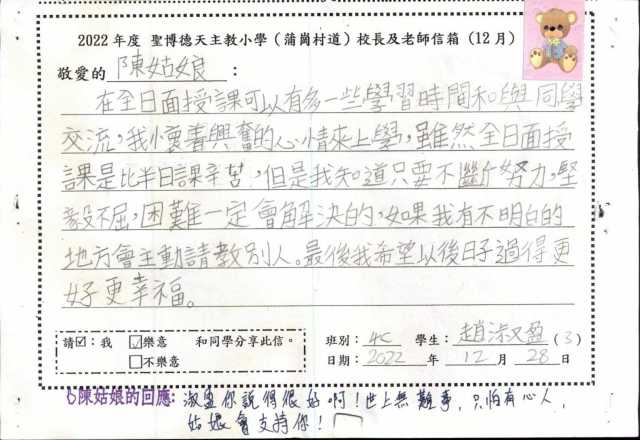 2022 年度 聖博德天主教小學（蒲崗村道）校長及老師信箱（12 月）
敬愛的 陳姑娘 ：
在全日面授課可以有多一些學習時間和與同學
交流，我懷著興奮的心情來上學，雖然全日面授
課是比半日課辛苦，但是我知道只要不斷努力，堅
毅不屈，困難一定會解決的，如果我有不明白的
地方會主動請教別人。最後我希望以後日子過得更
好更幸福。
請☑：我 ☑樂意 和同學分享此信。
□不樂意
班別： 4C 學生： 趙淑盈 (3)
日期： 2022 年 12 月 28 日
陳姑娘的回應: 淑盈你說得很好啊！世上無難事，只怕有心人，
姑娘會支持你！